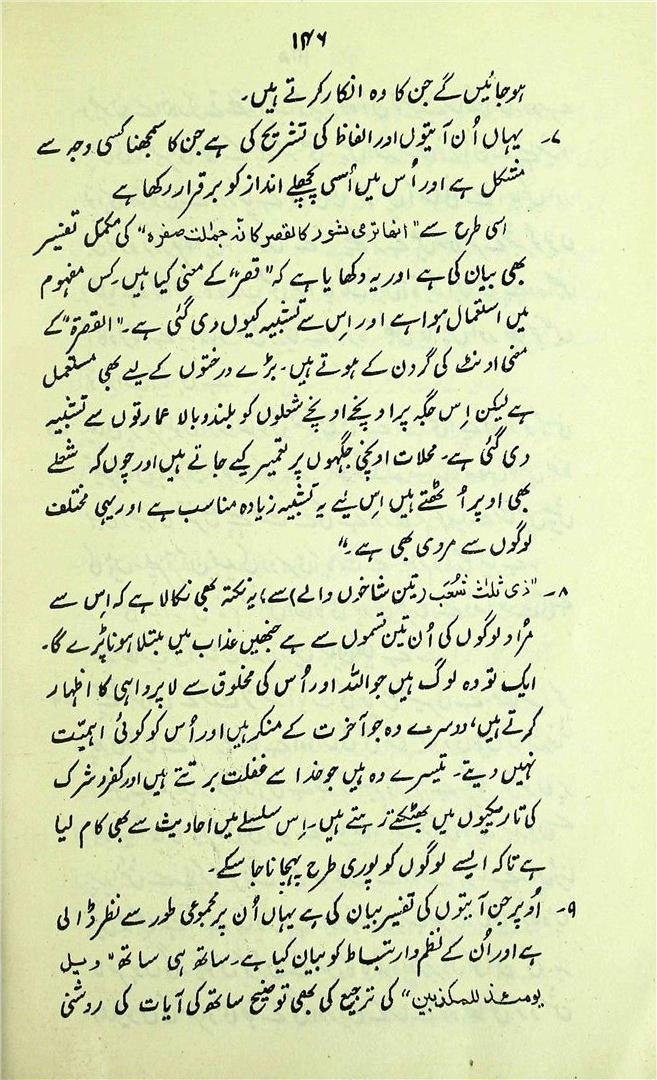 ۱۴۶
ہو جائیں گے جن کا وہ انکار کرتے ہیں۔
۷۔ یہاں اُن آیتوں اور الفاظ کی تشریح کی ہے جن کا سمجھنا کسی وجہ سے
مشکل ہے اور اُس میں اُسی پچھلے انداز کو برقرار رکھا ہے
اسی طرح سے "انھا ترمی بشرر کالقصر کانہ جملت صفرہ" کی مکمل تفسیر
بھی بیان کی ہے اور یہ دکھایا ہے کہ "قصر" کے معنی کیا ہیں۔ کس مفہوم
میں استعمال ہوا ہے اور اِس سے تشبیہ کیوں دی گئی ہے۔ "القصرۃ" کے
معنی اونٹ کی گردن کے ہوتے ہیں۔ بڑے درختوں کے لیے بھی مستعمل
ہے لیکن اِس جگہ پر اونچے اونچے شعلوں کو بلند و بالا عمارتوں سے تشبیہ
دی گئی ہے۔ محلات اونچی جگہوں پر تعمیر کیے جاتے ہیں اور چوں کہ شعلے
بھی اوپر اُٹھتے ہیں اِس لیے یہ تشبیہ زیادہ مناسب ہے اور یہی مختلف
لوگوں سے مروی بھی ہے۔"
۸۔ "ذی ثلث شعب (تین شاخوں والے) سے، یہ نکتہ بھی نکالا ہے کہ اِس سے
مراد لوگوں کی اُن تین قسموں سے ہے جنھیں عذاب میں مبتلا ہونا پڑے گا۔
ایک تو وہ لوگ ہیں جو اللہ اور اُس کی مخلوق سے لاپرواہی کا اظہار
کرتے ہیں، دوسرے وہ جو آخرت کے منکر ہیں اور اُس کو کوئی اہمیت
نہیں دیتے۔ تیسرے وہ ہیں جو خدا سے غفلت برتتے ہیں اور کفر و شرک
کی تاریکیوں میں بھٹکتے رہتے ہیں۔ اِس سلسلے میں احادیث سے بھی کام لیا
ہے تاکہ ایسے لوگوں کو پوری طرح پہچانا جا سکے۔
۹۔ اُوپر جن آیتوں کی تفسیر بیان کی ہے یہاں اُن پر مجموعی طور سے نظر ڈالی
ہے اور اُن کے نظم و ارتباط کو بیان کیا ہے۔ ساتھ ہی ساتھ "ویل
یومئذ للمکذبین" کی ترجیع کی بھی توضیح ساتھ کی آیات کی روشنی